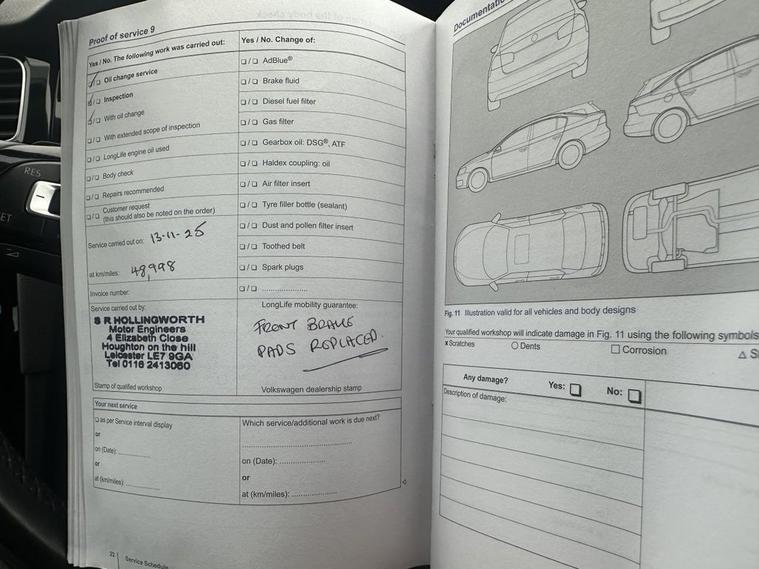 Proof of service 9
Yes / No. The following work was carried out:
❑/❑ Oil change service
❑/❑ Inspection
❑/❑ With oil change
❑/❑ With extended scope of inspection
❑/❑ LongLife engine oil used
❑/❑ Body check
❑/❑ Repairs recommended
❑/❑ Customer request
(this should also be noted on the order)
Service carried out on: 13-11-25
at km/miles: 48,998
Invoice number:
Service carried out by:
S R HOLLINGWORTH
Motor Engineers
4 Elizabeth Close
Houghton on the hill
Leicester LE7 9GA
Tel 0116 2413060
Stamp of qualified workshop
Yes / No. Change of:
❑/❑ AdBlue®
❑/❑ Brake fluid
❑/❑ Diesel fuel filter
❑/❑ Gas filter
❑/❑ Gearbox oil: DSG®, ATF
❑/❑ Haldex coupling: oil
❑/❑ Air filter insert
❑/❑ Tyre filler bottle (sealant)
❑/❑ Dust and pollen filter insert
❑/❑ Toothed belt
❑/❑ Spark plugs
❑/❑ ....................
LongLife mobility guarantee:
FRONT BRAKE
PADS REPLACED.
Volkswagen dealership stamp
Your next service
❑ as per Service interval display
or
on (Date): ....................
or
at (km/miles) ....................
Which service/additional work is due next?
on (Date): ....................
or
at (km/miles): ....................
22 Service Schedule
Fig. 11 Illustration valid for all vehicles and body designs
Your qualified workshop will indicate damage in Fig. 11 using the following symbols
x Scratches
O Dents
❑ Corrosion
Any damage? Yes: ❑ No: ❑
Description of damage:
RES